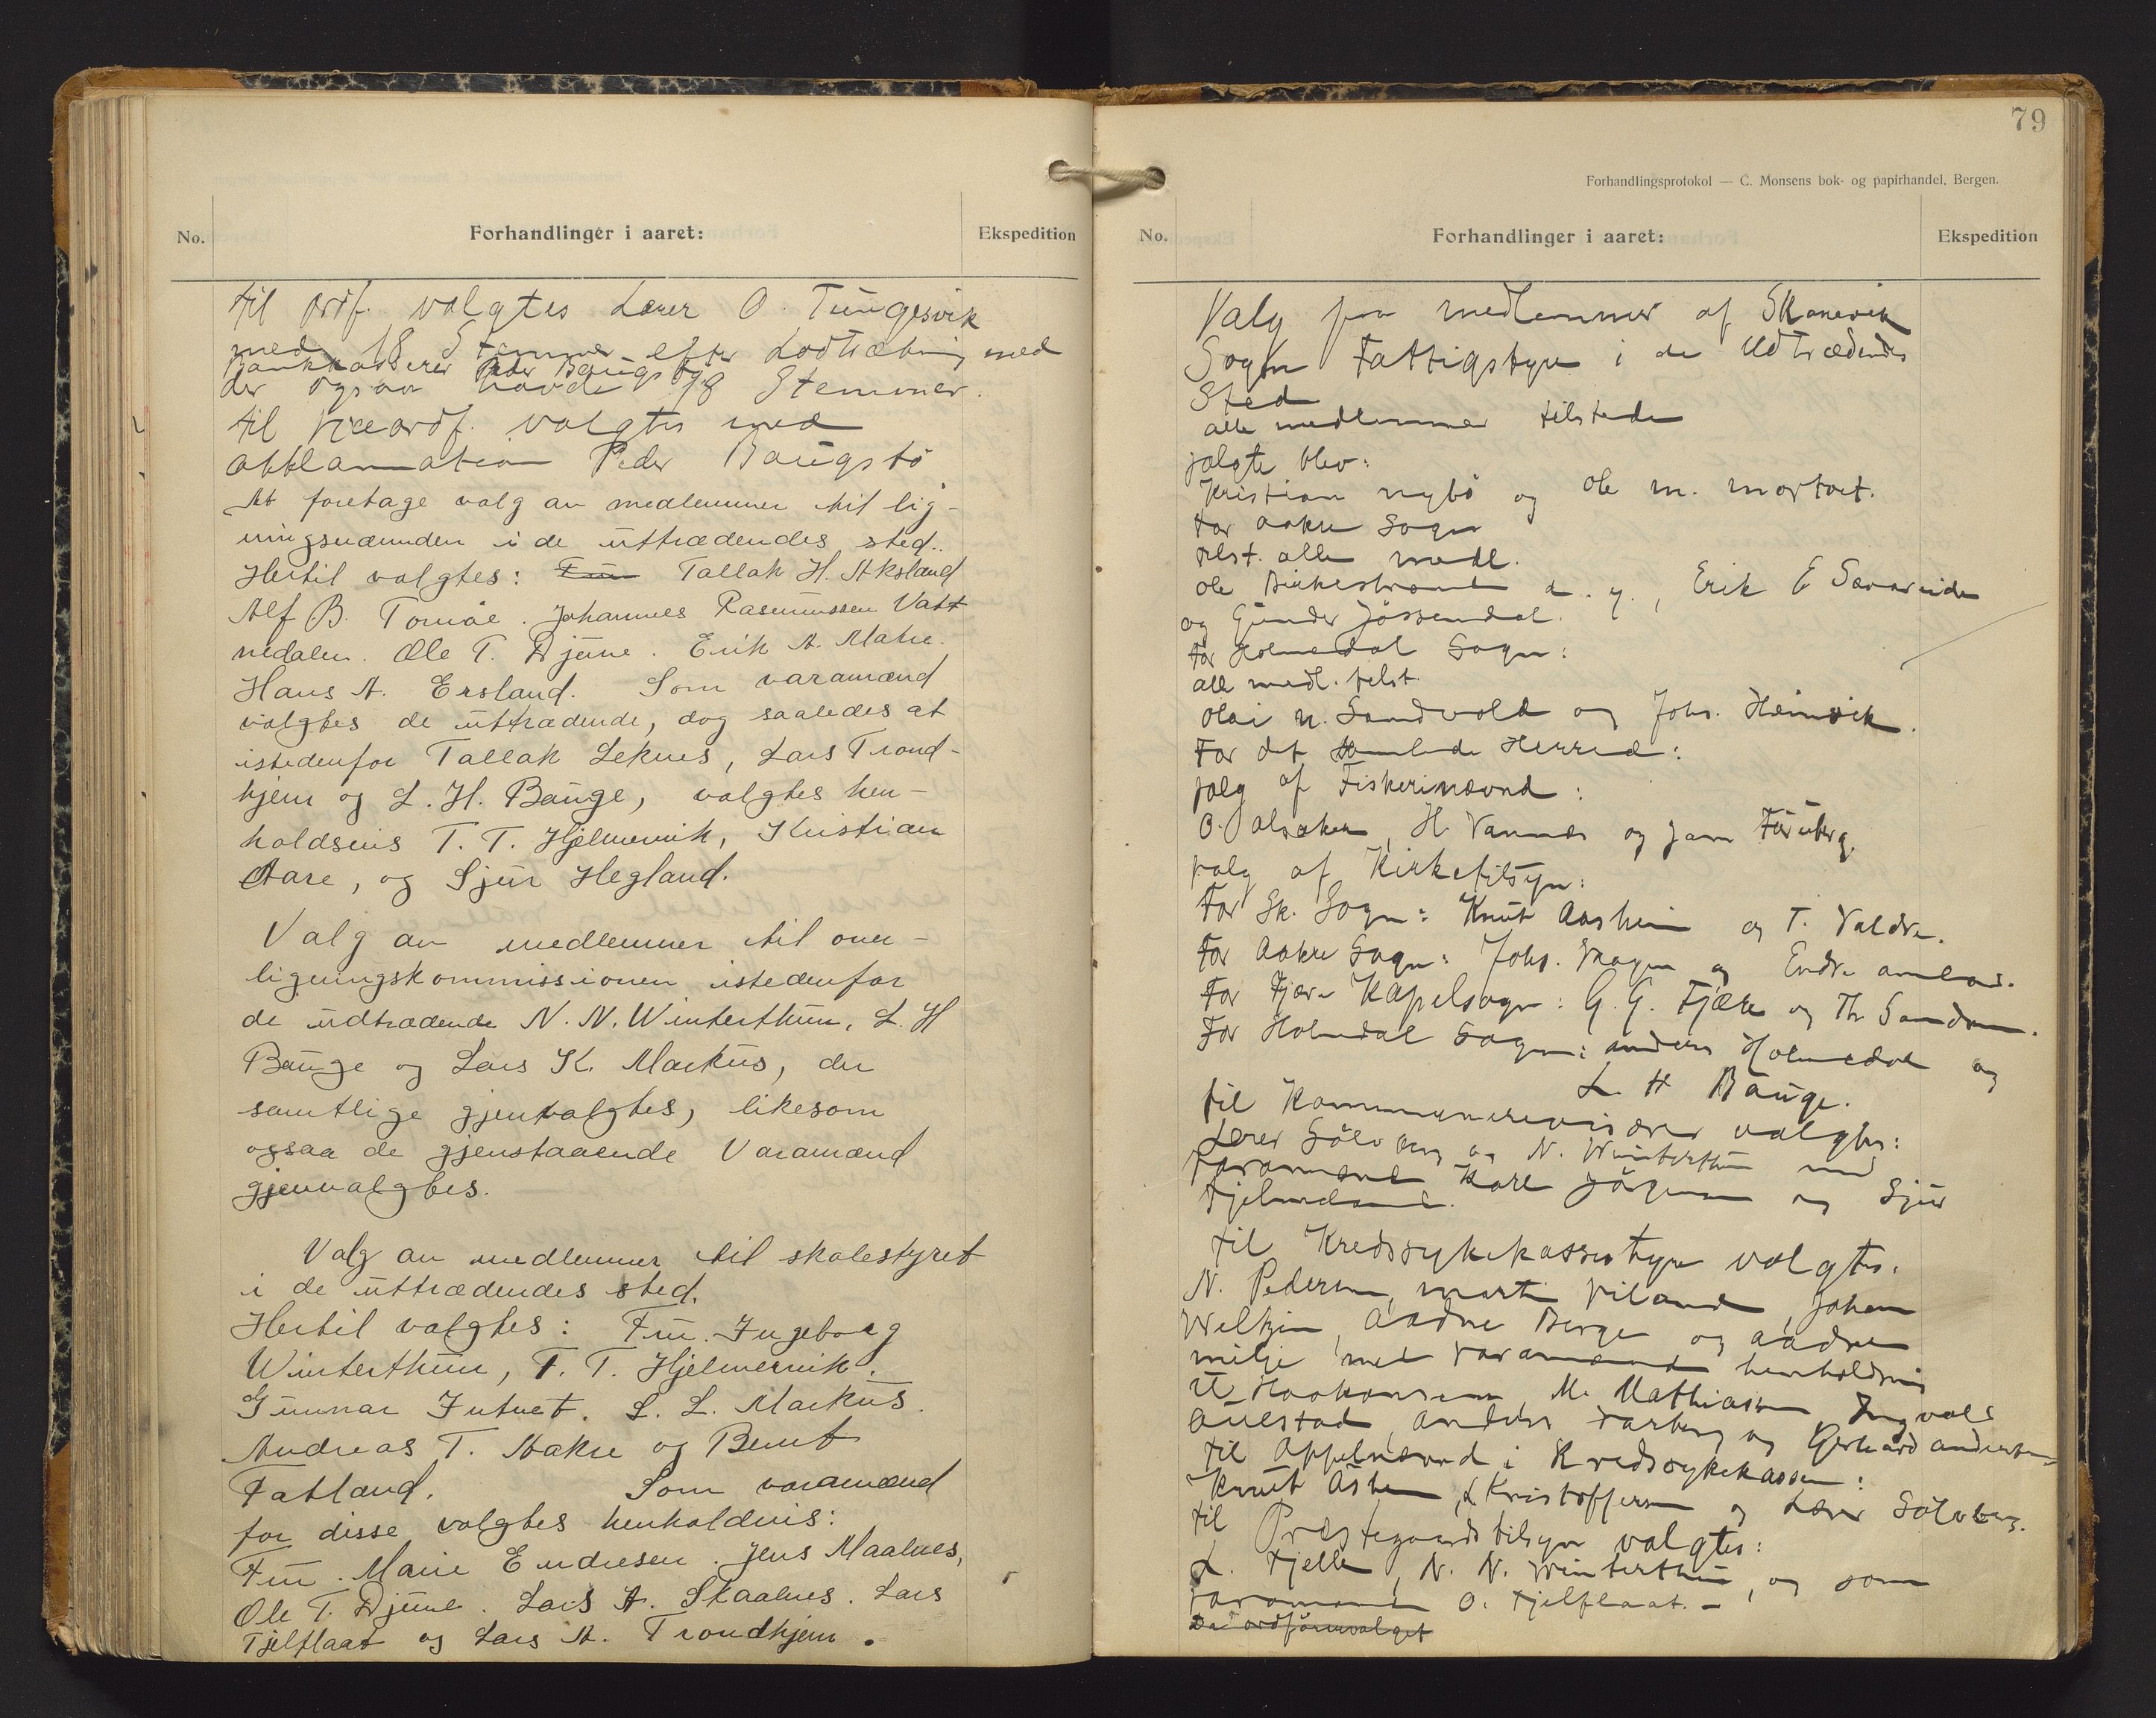 No. Forhandlinger i aaret: Ekspedition
til ordf. valgtes Lærer O. Tungesvik
med 18 Stemmer efter Lodtrækning med
Bankkasserer Peder Baugstø
der ogsaa havde 18 Stemmer.
til viceordf. valgtes med
akklamation Peder Baugstø
At foretage valg av medlemmer til lig-
ningsnævnden i de uttrædendes sted.
Hertil valgtes: Tallak H. Aksland
Alf B. Tomøe. Johannes Rasmussen Vatt
nedalen. Ole T. Djuve. Erik A. Matre.
Hans A. Ersland. Som varamænd
valgtes de uttrædende, dog saaledes at
istedenfor Tallak Leknes, Lars Trond-
hjem og L. H. Bauge, valgtes hen-
holdsvis T. T. Hjelmervik, Kristian
Aare, og Sjur Hegland.
Valg av medlemmer til over-
ligningskommissionen istedenfor
de udtrædende N. N. Winterthun, L. H
Bauge og Lars K. Markus, der
samtlige gjenvalgtes, likesom
ogsaa de gjenstaaende Varamænd
gjenvalgtes.
Valg av medlemmer til skolestyret
i de uttrædendes sted.
Hertil valgtes: Fru. Ingeborg
Winterthun, T. T. Hjelmervik.
Gunnar Jutnet. L. L. Markus.
Andreas T. Aakre og Bernt
Fatland. Som varamænd
for disse valgtes henholdvis:
Fru. Marie Endresen. Jens Maalnes,
Ole T. Djuve. Lars A. Skaalnes. Lars
Tjelflaat og Lars A. Trondhjem.
79
Forhandlingsprotokol — C. Monsens bok- og papirhandel, Bergen.
No. Forhandlinger i aaret: Ekspedition
Valg paa medlemmer af Skanevik
Sogn Fattigstyre i de Udtrædendes
Sted
alle medlemmer tilstede
valgte blev:
Kristian nybö og Ole M. Mortvet.
For Aakre Sogn
tilst. alle medl.
Ole Birkestrand d. y., Erik E Sævareide
og Gunder Jössendal.
For Holmedal Sogn:
alle medl. tilst.
Olai N. Sandvold og Johs. Heimvik.
For det samlede Herred:
valg af Fiskerinævnd:
O. Alsaker, H. Vannes og Jam Furuberg.
valg af Kirketilsyn:
For Sk. Sogn: Knut Aasheim og T. Valdre.
For Aakre Sogn: Johs. Skogen og Endre
For Fjære Kapelsogn: G. G. Fjære og Th Sandven.
For Holmedal Sogn: Anders Holmedal og
L. H Bauge.
til Kommunerevisorer valgtes:
Lærer Sölvberg og N. Winterthun med
Varamænd Karl Jörgensen og Sjur
Hjelmeland.
til Kredssykekassestyre valgtes.
N. Pedersen, Martin Viland, Johan
Aadne Berge og Aadne
Milje med varamænd henholdsvis
Haakonsen, M. Mathiasen, Ingvald
Aulestad, Anders Varberg og Gerhard Andersen
til Appelnævnd i Kredssykekassen:
Knut Åshem, L Kristoffersen og Lærer Sölvberg.
til Præstegaards tilsyn valgtes:
L. Fjelle, N. N. Winterthun, og som
varamænd O. Tjelflaat. –
Da ordförervalget